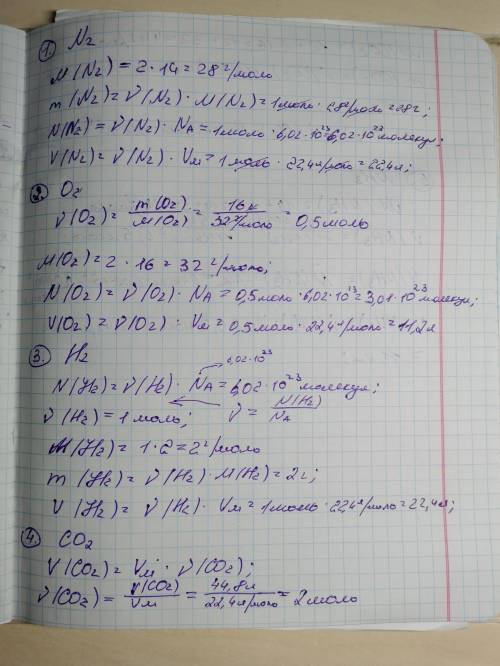 1. N2
M(N2) = 2 · 14 = 28 г/моль
m(N2) = ν(N2) · M(N2) = 1моль · 28г/моль = 28г;
N(N2) = ν(N2) · NA = 1моль · 6,02 · 10²³ = 6,02 · 10²³ молекул;
V(N2) = ν(N2) · Vм = 1 моль · 22,4л/моль = 22,4л;
2. O2
ν(O2) = m(O2)/M(O2) = 16г/32г/моль = 0,5моль
M(O2) = 2 · 16 = 32 г/моль;
N(O2) = ν(O2) · NA = 0,5моль · 6,02 · 10²³ = 3,01 · 10²³ молекул;
V(O2) = ν(O2) · Vм = 0,5моль · 22,4л/моль = 11,2л
3. H2
6,02 · 10²³
N(H2) = ν(H2) · NA = 6,02 · 10²³ молекул;
ν(H2) = 1 моль; ← ν = N(H2)/NA
M(H2) = 1 · 2 = 2 г/моль
m(H2) = ν(H2) · M(H2) = 2г;
V(H2) = ν(H2) · Vм = 1моль · 22,4л/моль = 22,4л;
4. CO2
V(CO2) = Vм · ν(CO2);
ν(CO2) = V(CO2)/Vм = 44,8л/22,4л/моль = 2моль